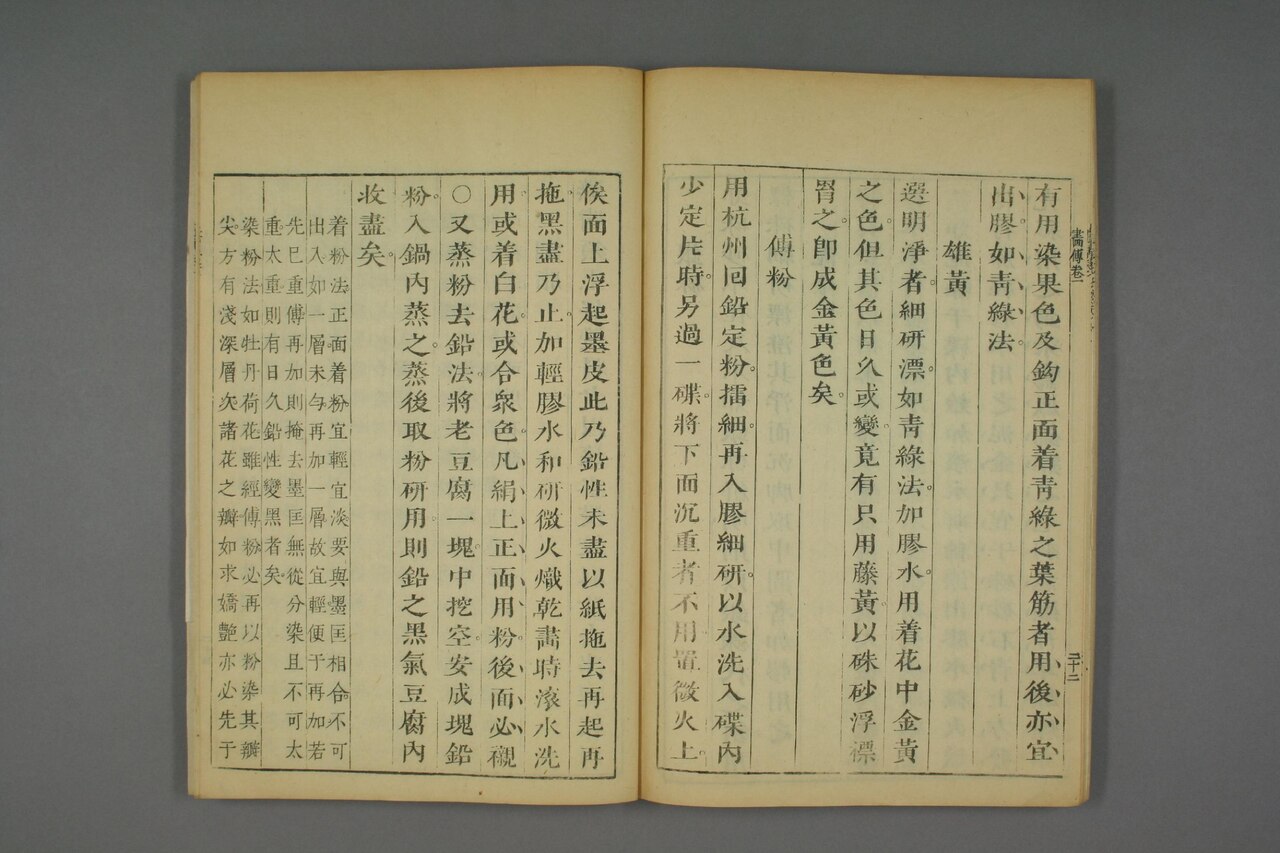 有用染果色及鈎正面着靑綠之葉筋者用後亦宜
出膠如靑綠法
雄黃
選明淨者細研漂如靑綠法加膠水用着花中金黃
之色但其色日久或變竟有只用藤黃以硃砂浮標
罥之卽成金黃色矣
傅粉
用杭州囘鉛定粉擂細再入膠細硏以水洗入碟內
少定片時另過一碟將下面沉重者不用置微火上
俟面上浮起墨皮此乃鉛性未盡以紙拖去再起再
拖黑盡乃止加輕膠水和硏微火熾乾畵時滚水洗
用或着白花或合衆色凡絹上正面用粉後面必襯
〇又蒸粉去鉛法將老豆腐一塊中挖空安成塊鉛
粉入鍋內蒸之蒸後取粉硏用則鉛之黑氣豆腐內
收盡矣
着粉法正面着粉宜輕宜淡要與墨匡相合不可
出入如一層未勻再加一層故宜輕便于再加若
先已重傅再加則掩去墨匡無從分染且不可太
重太重則有日久鉛性變黑者矣
染粉法如牡丹荷花雖經傅粉必再以粉染其瓣
尖方有淺深層次諸花之瓣如求嬌艶亦必先于
畵傳卷一
二十二